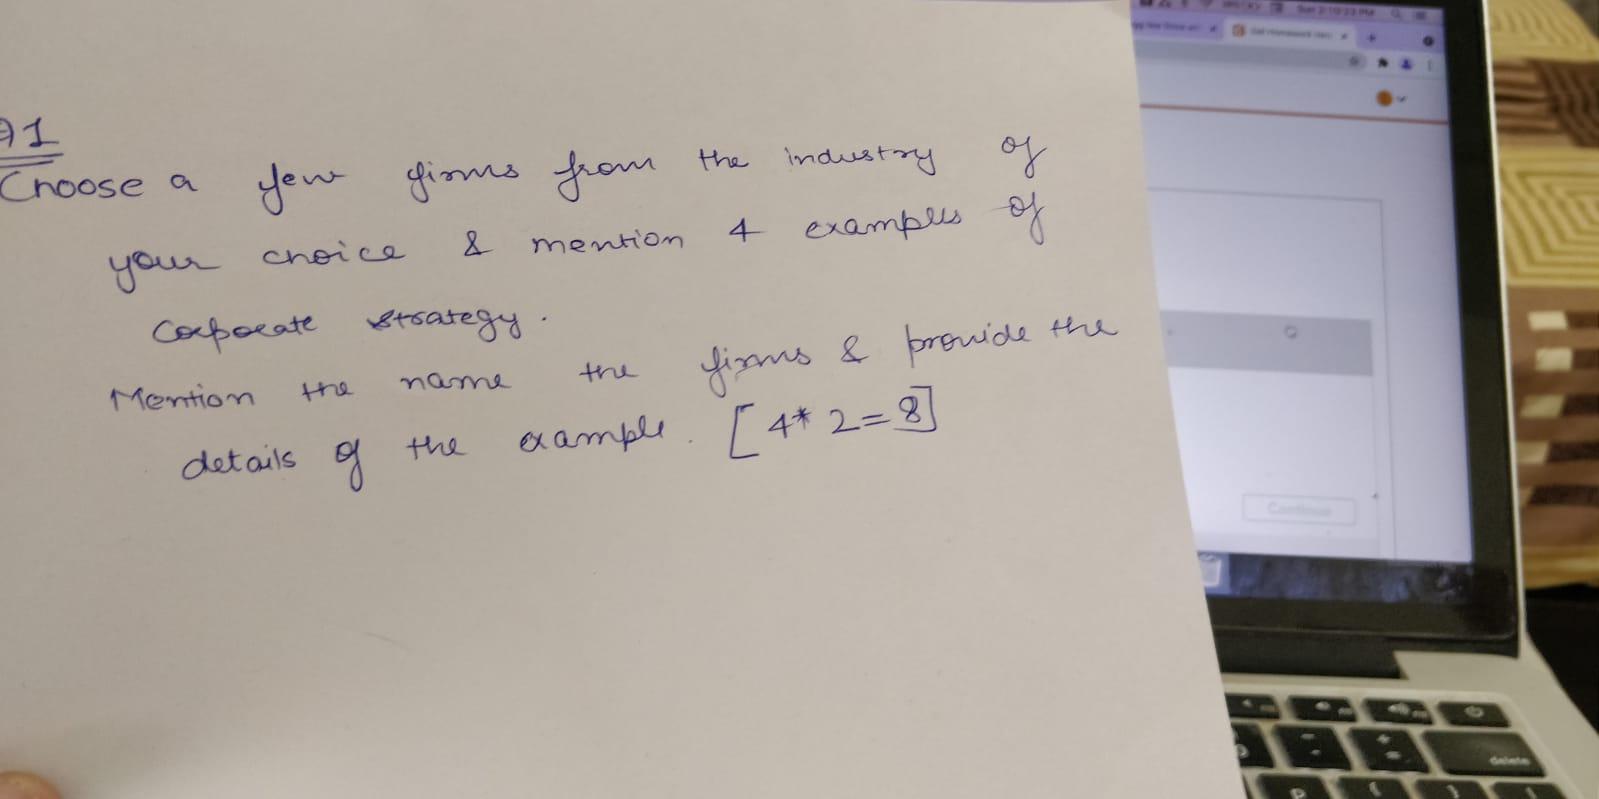 Q1
Choose a few firms from the industry of
your choice & mention 4 examples of
Corporate strategy.
Mention the name the firms & provide the
details of the example. [4*2=8]
Continue
delete